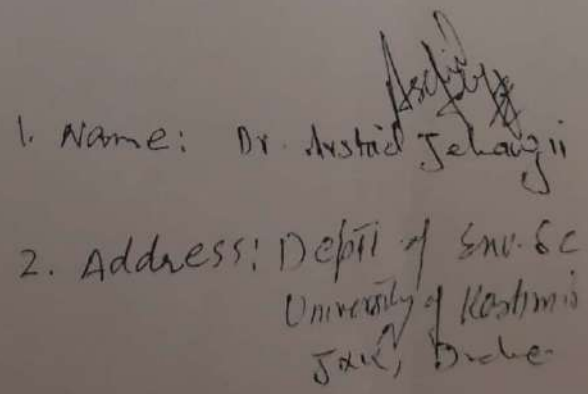 1. Name: Dr. Arshid Jehangir
2. Address: Deptt of Env. Sc
University of Kashmir
J&K, India